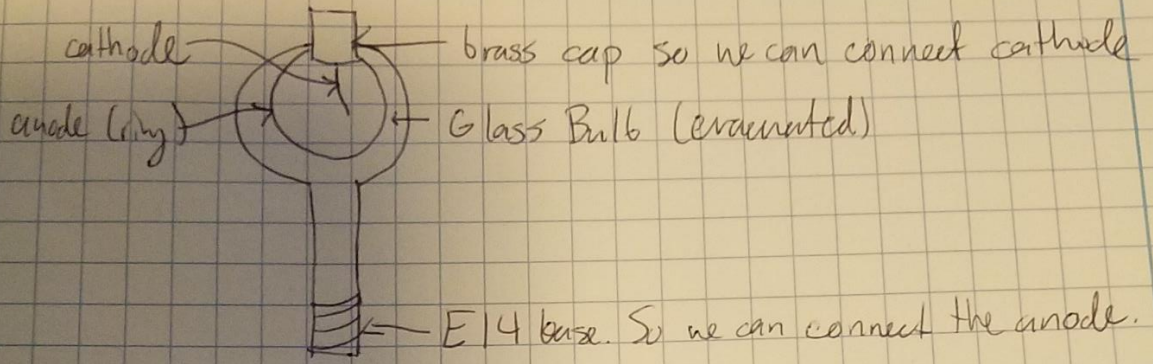 cathode
brass cap so we can connect cathode
anode (ring)
Glass Bulb (evacuated)
E14 base. So we can connect the anode.